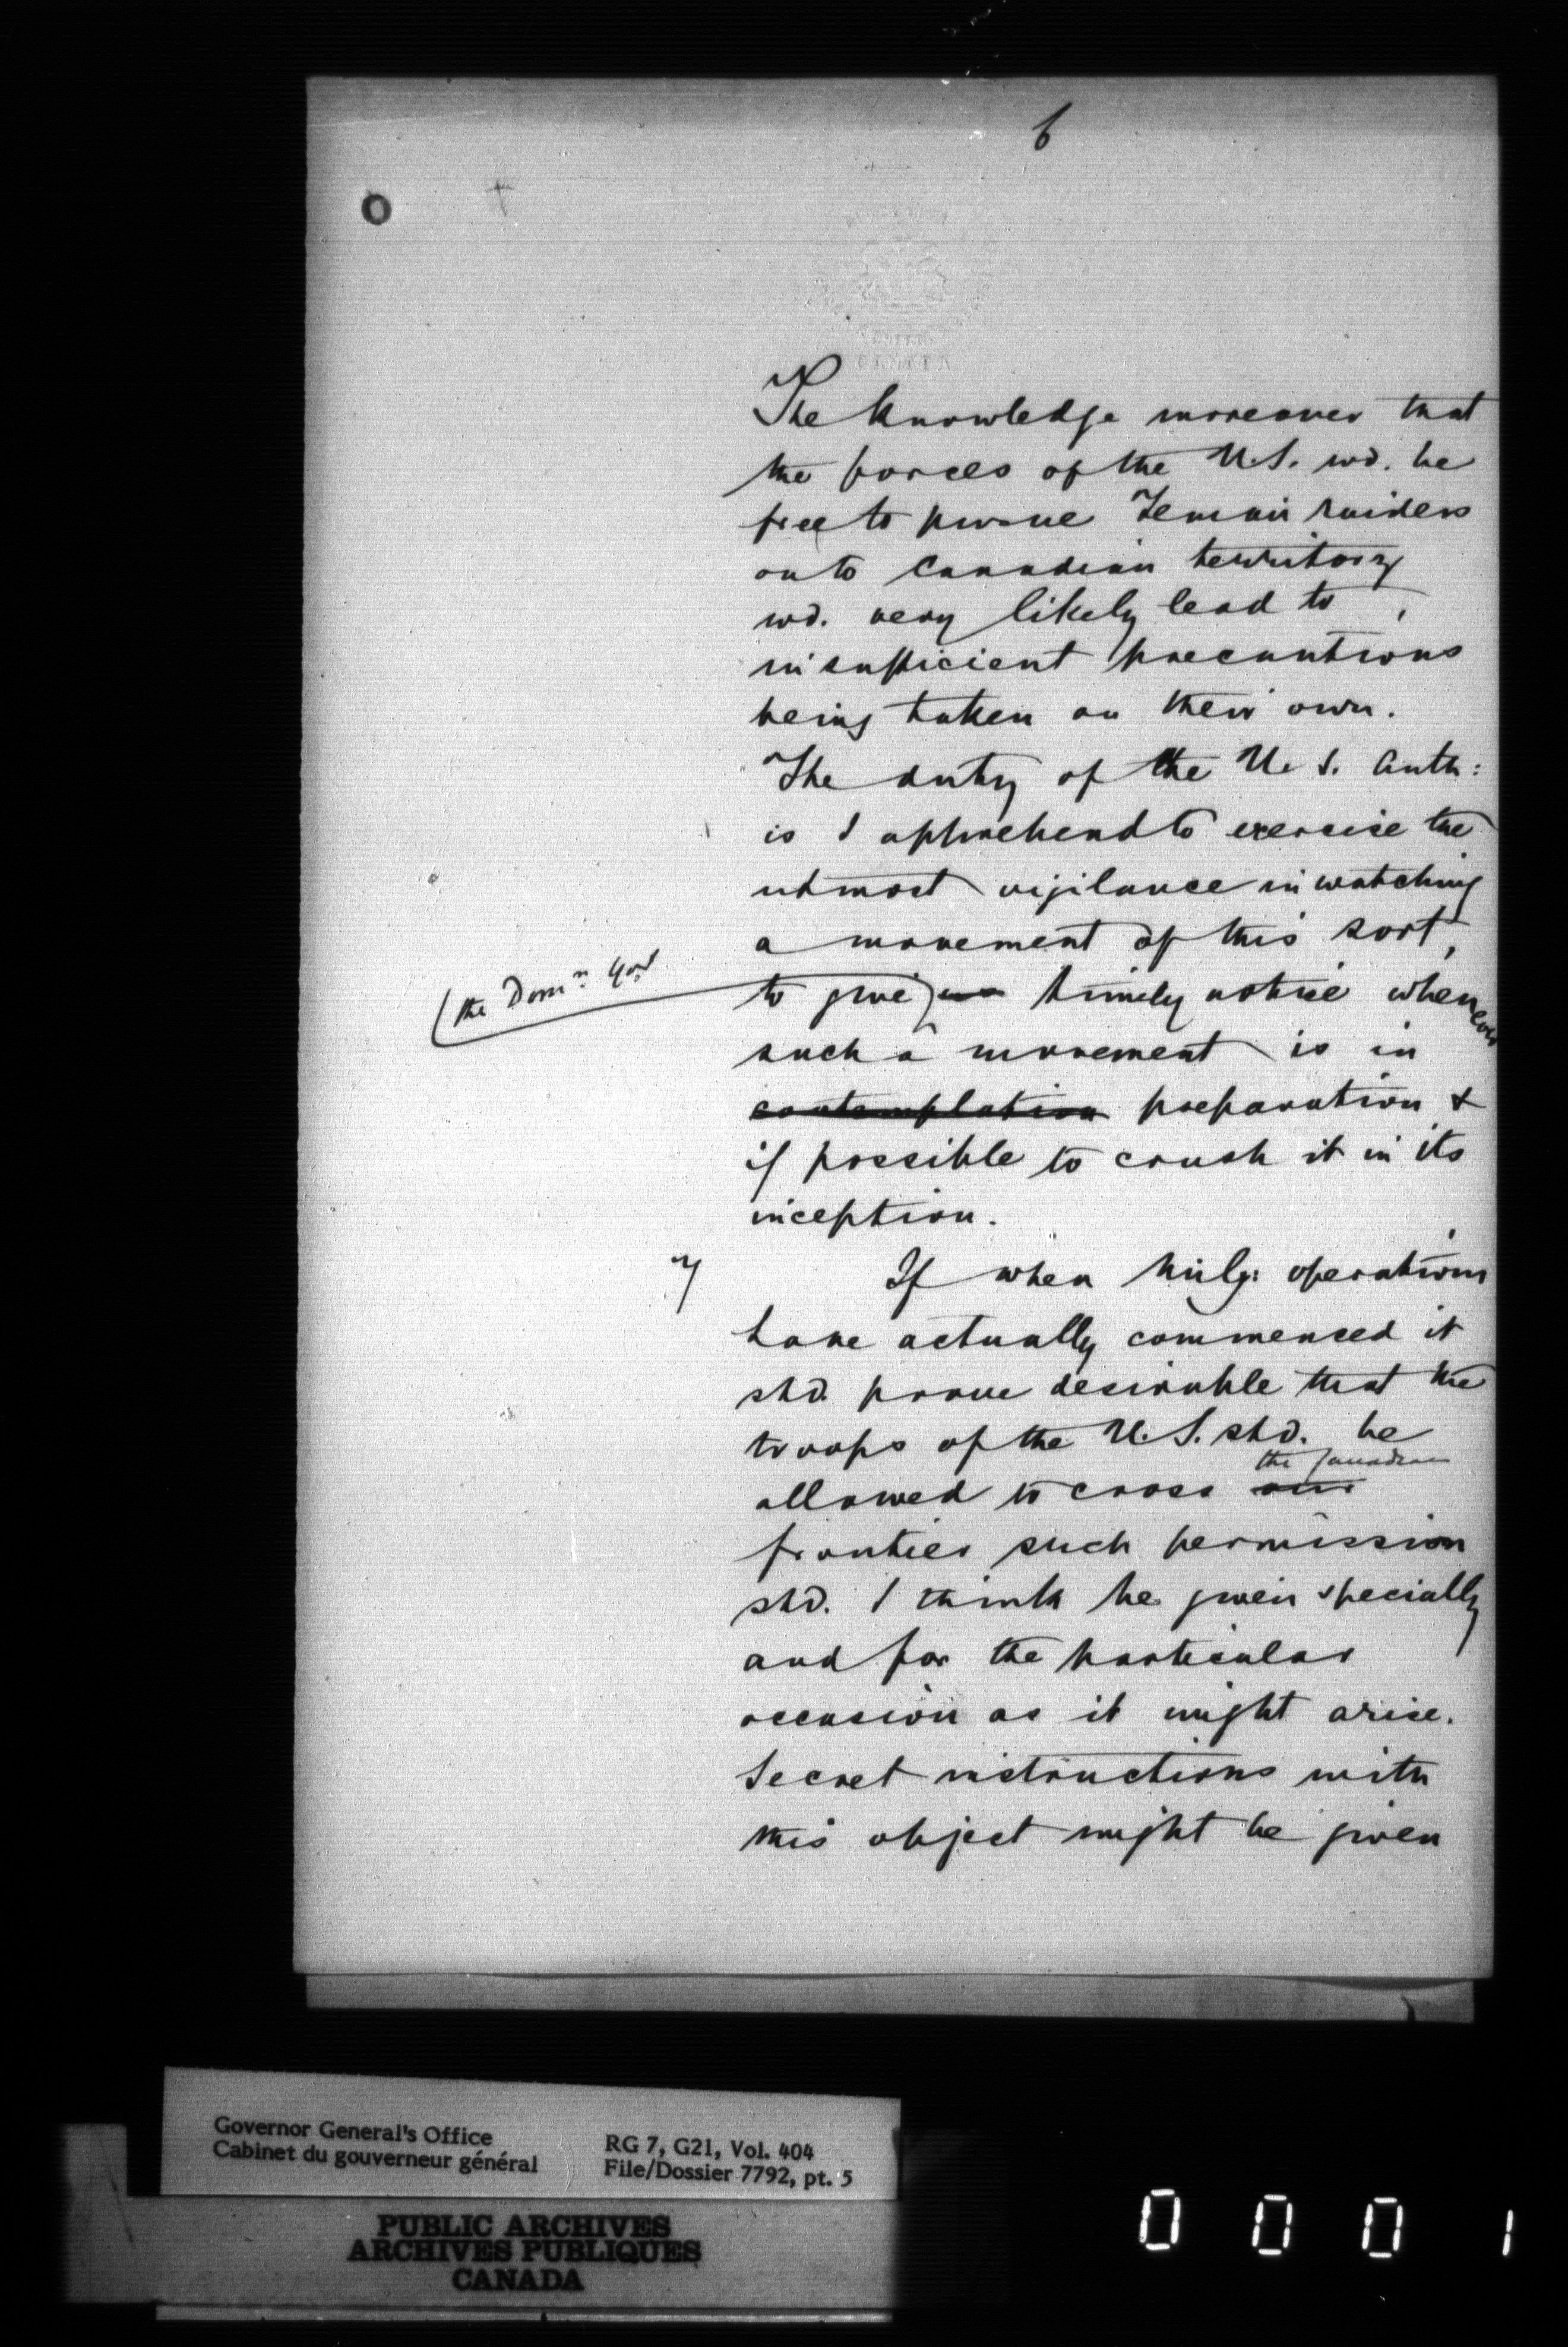 6
The knowledge moreover that
the forces of the U.S. wd. be
free to pursue Fenian raiders
on to Canadian territory
wd. very likely lead to
insufficient precautions
being taken on their own.
The duty of the U.S. Auth:
is I apprehend to exercise the
utmost vigilance in watching
a movement of this sort,
the Domn. Govt
to give us timely notice whenever
such a movement is in
contemplation preparation &
if possible to crush it in its
inception.
7 If when Mily: operations
have actually commenced it
shd. prove desirable that the
troops of the U.S. shd. be
the Canadian
allowed to cross our
frontier such permission
shd. I think be given specially
and for the particular
occasion as it might arise.
Secret instructions with
this object might be given
Governor General's Office
Cabinet du gouverneur général
RG 7, G21, Vol. 404
File/Dossier 7792, pt. 5
PUBLIC ARCHIVES
ARCHIVES PUBLIQUES
CANADA
0 0 0 1